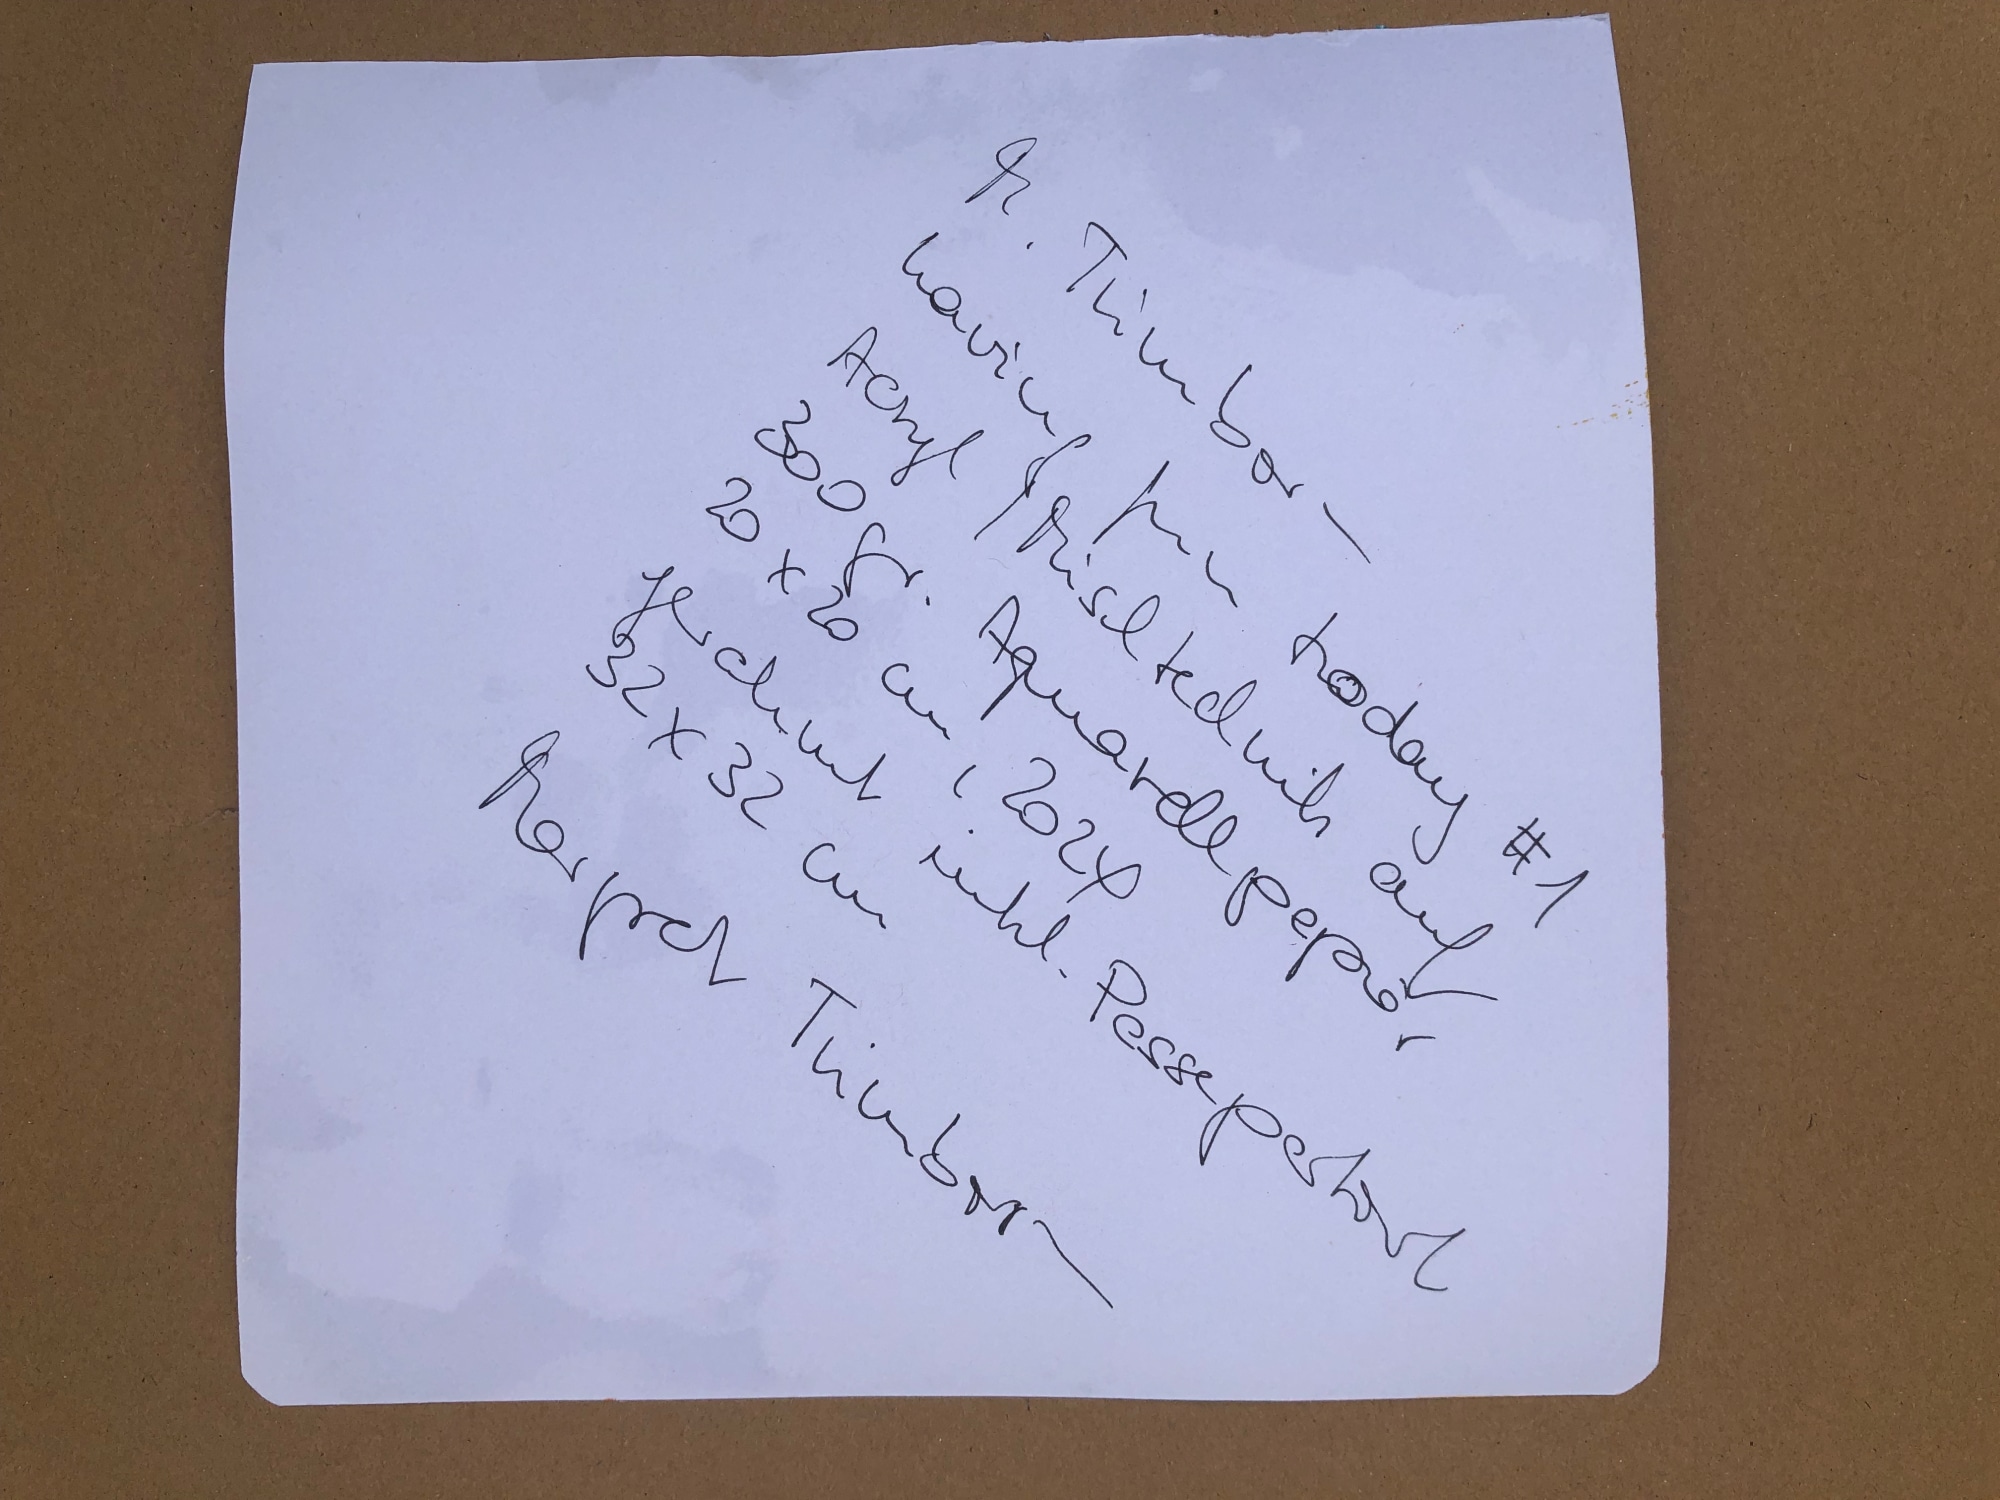 M. Thimborn
having fun today #1
Acryl / Mischtechnik auf
300 gr. Aquarellpapier
20 x 20 cm, 2024
gerahmt inkl. Passepartout
32 x 32 cm
Thimborn